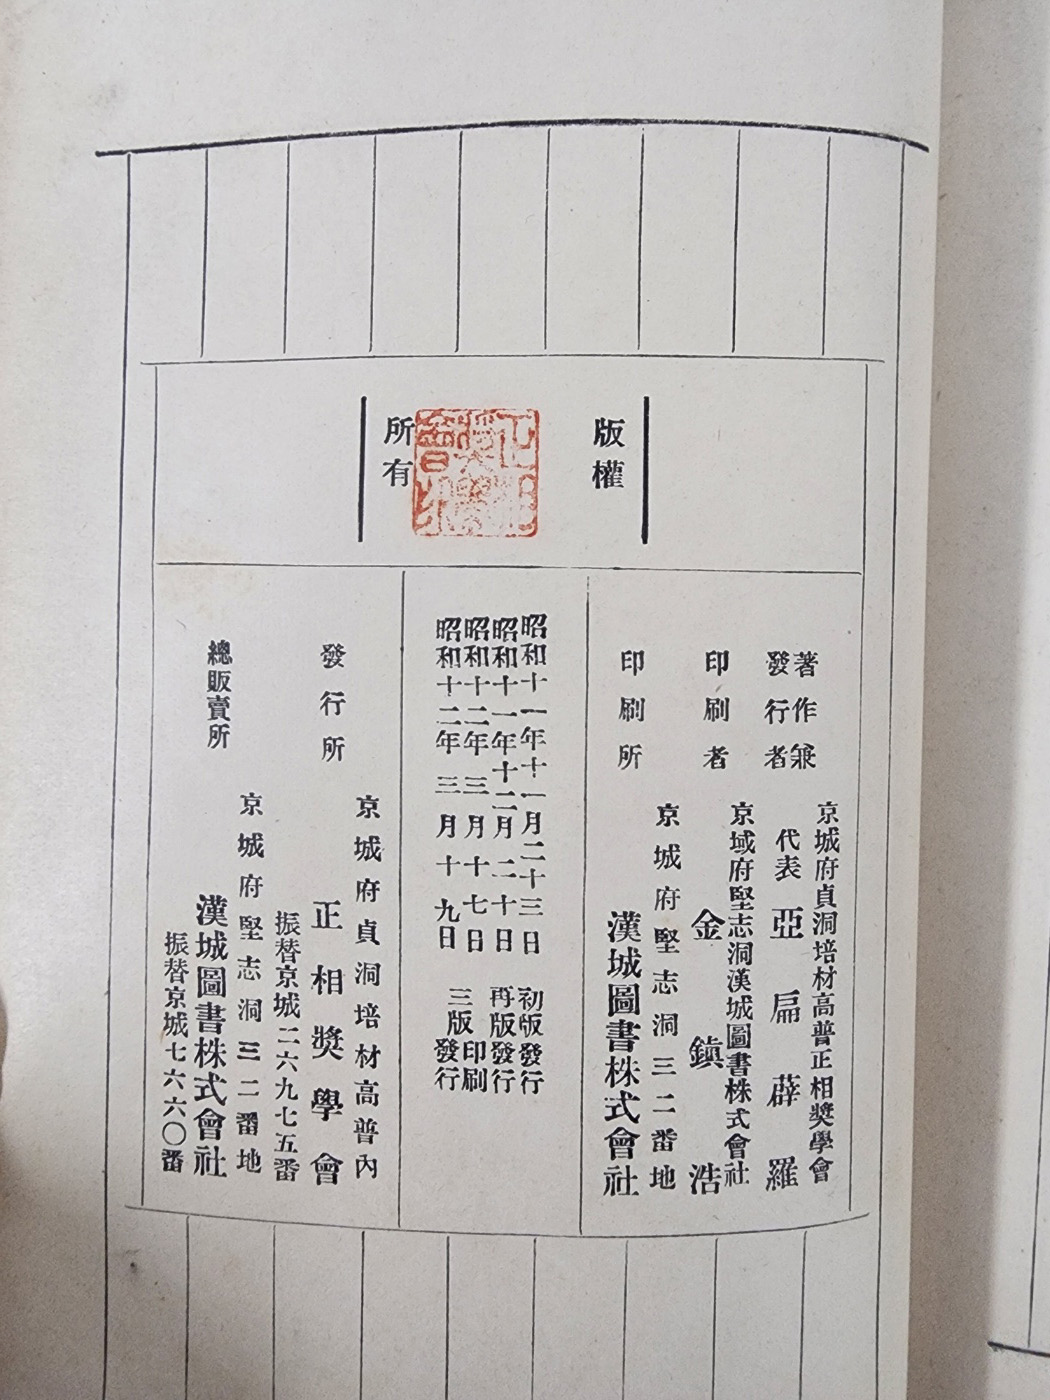 版權
所有
著作兼
發行者
京城府貞洞培材高普正相奬學會
代表 亞扁薜羅
印刷者
京域府堅志洞漢城圖書株式會社
金鎭浩
印刷所
京城府堅志洞三二番地
漢城圖書株式會社
昭和十一年十一月二十三日 初版發行
昭和十一年十二月二十日 再版發行
昭和十二年三月十七日 三版印刷
昭和十二年三月十九日 發行
發行所
京城府貞洞培材高普內
正相奬學會
振替京城二六九七五番
總販賣所
京城府堅志洞三二番地
漢城圖書株式會社
振替京城七六六〇番